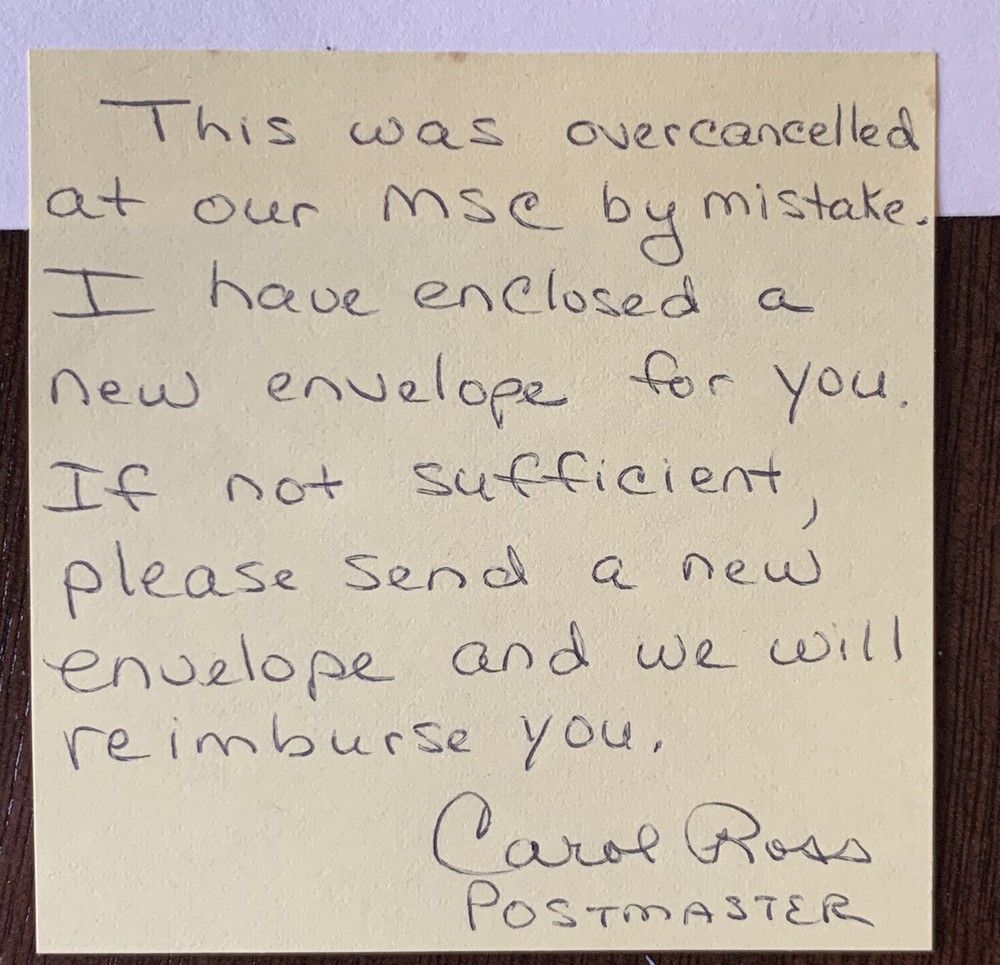 This was overcancelled
at our MSC by mistake.
I have enclosed a
new envelope for you.
If not sufficient,
please send a new
envelope and we will
reimburse you.
Carol Ross
POSTMASTER